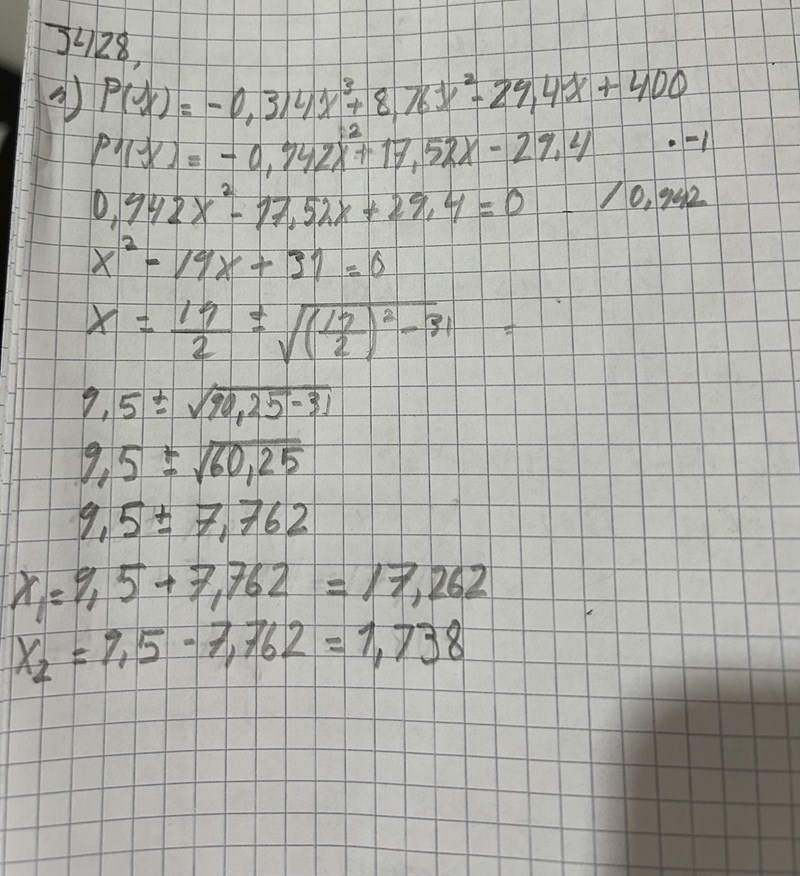 3428,
a) P(x) = -0,314x³ + 8,76x² - 29,4x + 400
P'(x) = -0,942x² + 17,52x - 29,4 · -1
0,942x² - 17,52x + 29,4 = 0 / 0,942
x² - 19x + 31 = 0
x = 19/2 ± √((19/2)² - 31) =
9,5 ± √90,25-31
9,5 ± √60,25
9,5 ± 7,762
x₁ = 9,5 + 7,762 = 17,262
x₂ = 9,5 - 7,762 = 1,738